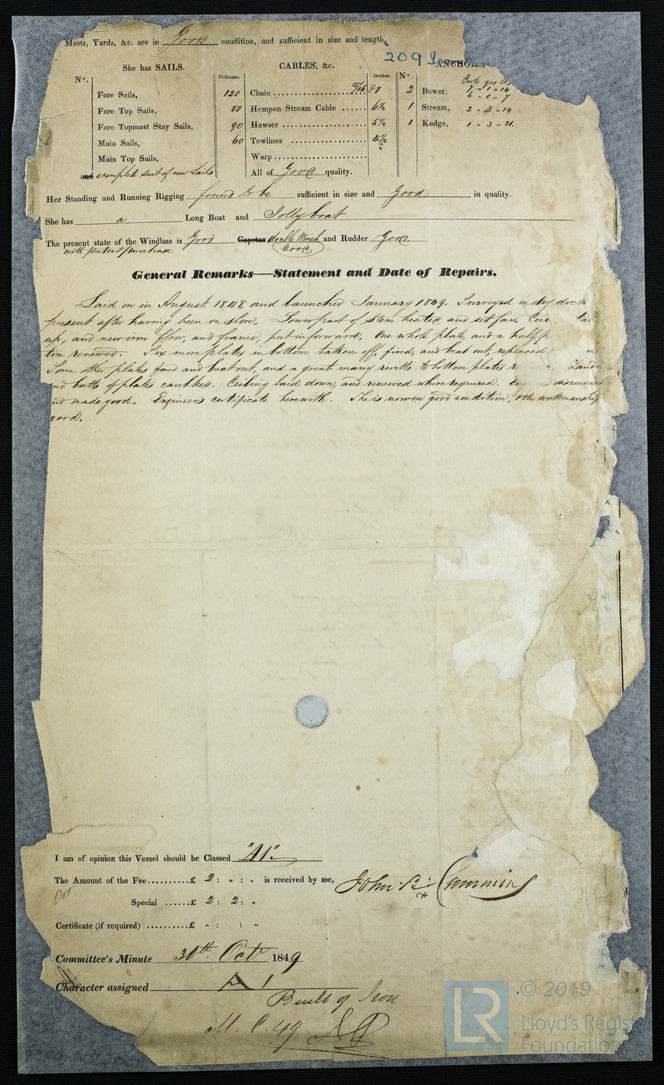 Masts, Yards, &c. are in Good condition, and sufficient in size and length.
209 ANCHORS
She has SAILS. CABLES, &c.
N°. Fathoms. Inches. N°.
Fore Sails, 120 Chain 2 Bower, 7 - 1 - 14
6 - 0 - 7
Fore Top Sails, 80 Hempen Stream Cable 6½ 1 Stream, 2 - 2 - 14
Fore Topmast Stay Sails, 90 Hawser 5½ 1 Kedge, 1 - 3 - 21
Main Sails, 60 Towlines 4½
Main Top Sails, Warp
and a complete suit of new Sails All of Good quality.
Her Standing and Running Rigging found to be sufficient in size and Good in quality.
She has a Long Boat and Jolly boat
The present state of the Windlass is Good Capstan double Winch and Rudder Good.
with patent purchase Good
General Remarks—Statement and Date of Repairs.
Laid on in August 1848 and launched January 1849. Surveyed in dry dock
present after having been on shore. Lower part of Stem heated and set fair,
and new iron floor, and frame, put in forward. One whole plate and a half p
renewed. Six more plates in bottom taken off, fired, and beat out, replaced
Some other plates fired and beat out, and a great many rivetts to bottom plates
butts of plates caulked. Ceiling laid down, and renewed where required.
made good. Engineers certificate herewith. She is now in good condition, workmanship
good.
I am of opinion this Vessel should be Classed "A1"
The Amount of the Fee £ 2 : " : " is received by me,
John B. Cummins
Special £ 2 : 2 : "
Certificate (if required) £ " : : "
Committee's Minute 30th Oct 1849
Character assigned A 1
Built of Iron
M.C. 49
LR
© 2019
Lloyd's Register
Foundation